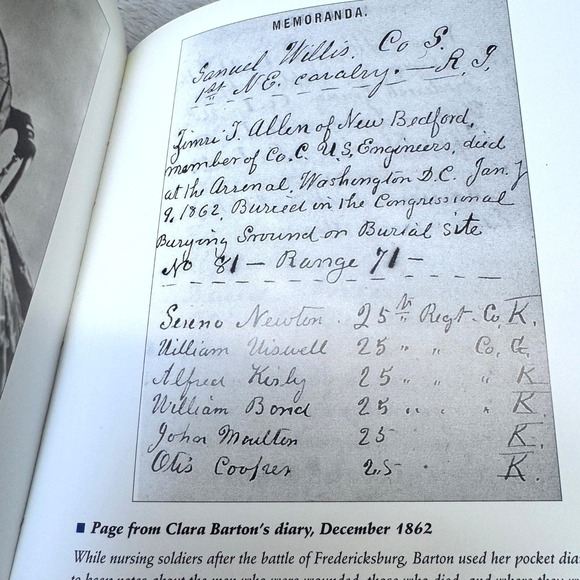 MEMORANDA.
Samuel Willis. Co G.
1st N.E. cavalry. — R. I,
Zimri T. Allen of New Bedford,
member of Co. C. U.S. Engineers, died
at the Arsenal, Washington D.C. Jan.
9, 1862, Buried in the Congressional
Burying Ground on Burial site
No 81 — Range 71 —
Sereno Newton 25th Regt. Co, K.
William Wiswell 25 " " Co, G,
Alfred Kirby 25 " " " K
William Bond 25 " " " K.
John Moulton 25 K.
Otis Cooper 25 " K.
■ Page from Clara Barton's diary, December 1862
While nursing soldiers after the battle of Fredericksburg, Barton used her pocket dia
to keep notes about the men who were wounded, those who died, and where they